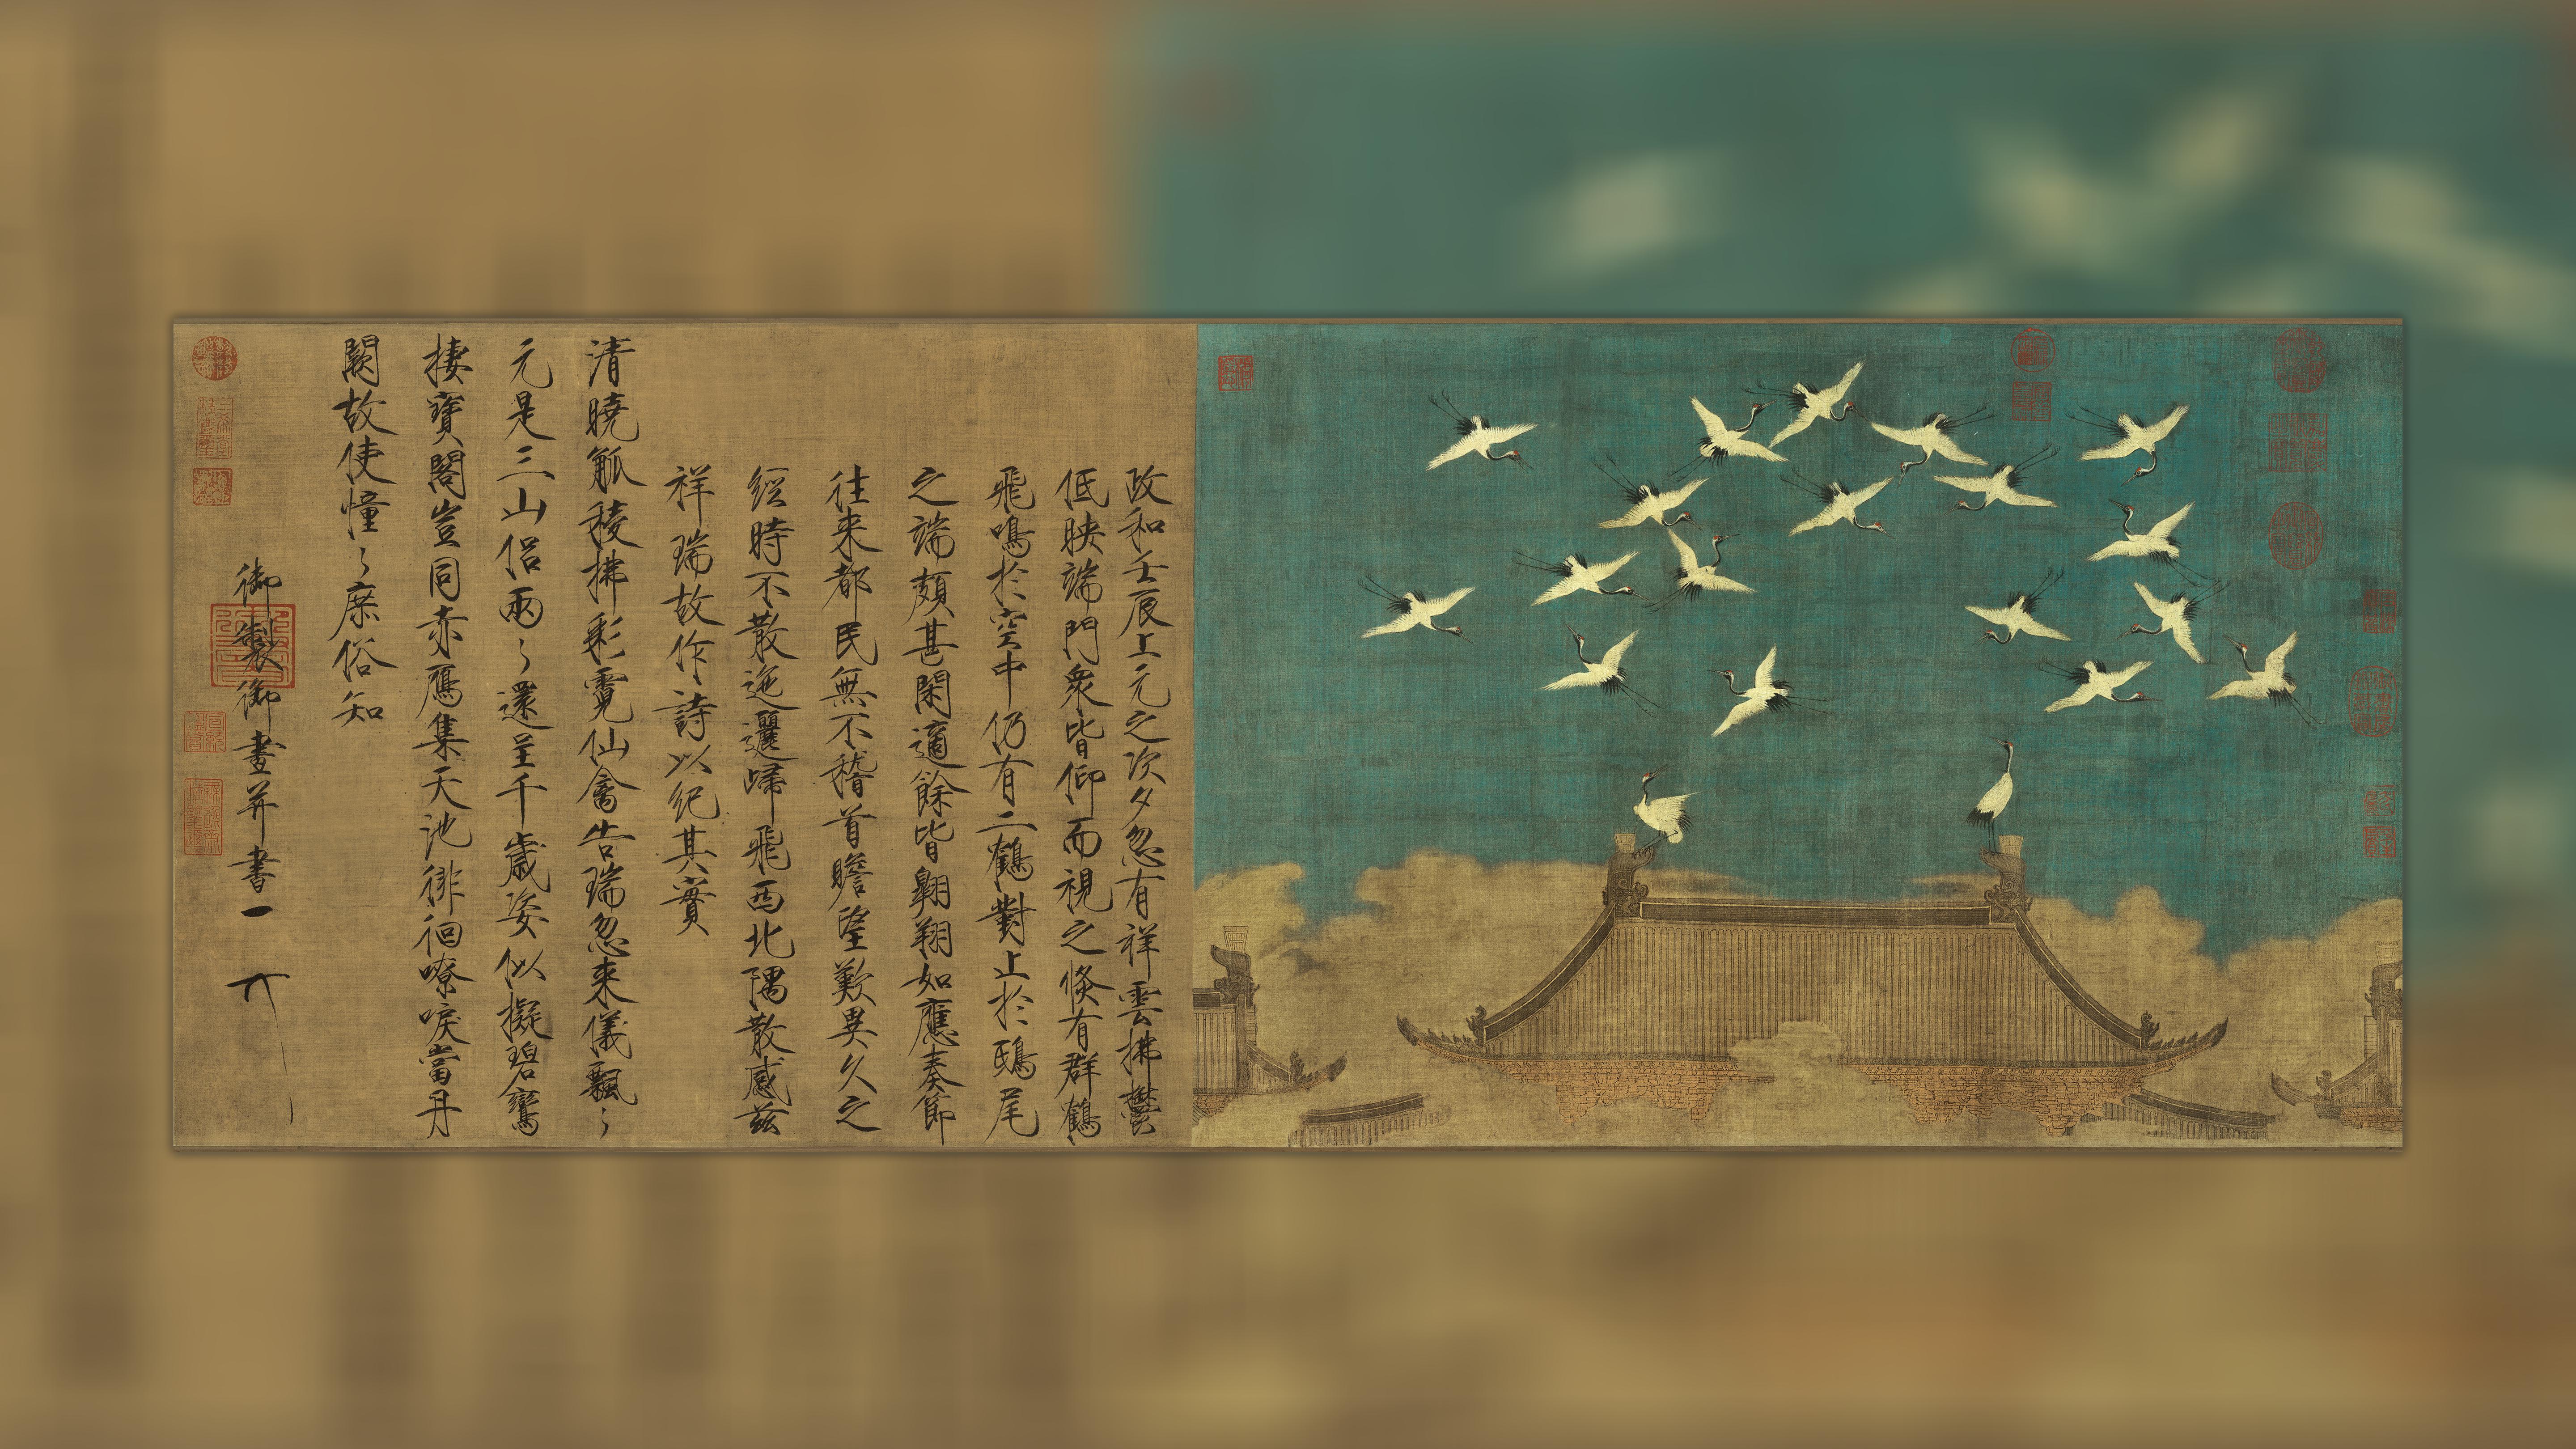 政和壬辰上元之次夕忽有祥雲拂欝
低映端門衆皆仰而視之倏有群鶴
飛鳴於空中仍有二鶴對止於鴟尾
之端頗甚閑適餘皆翱翔如應奏節
往来都民無不稽首瞻望歎異久之
經時不散迤邐歸飛西北隅散感兹
祥瑞故作詩以紀其實
清曉觚稜拂彩霓仙禽告瑞忽来儀飄〻
元是三山侣兩〻還呈千歲姿似擬碧鸞
棲寶閣豈同赤鴈集天池徘徊嘹唳當丹
闕故使憧〻庶俗知
御製御畫并書